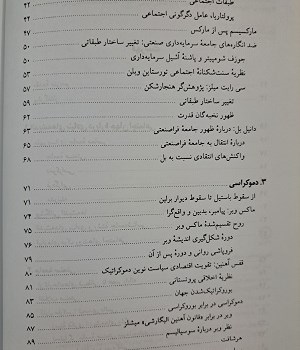 طبقات اجتماعی ۴۲
پرولتاریا، عامل دگرگونی اجتماعی ۴۴
مارکسیسم پس از مارکس ۴۷
ضد انگاره‌های جامعهٔ سرمایه‌داری صنعتی: تغییر ساختار طبقاتی ۵۰
جوزف شومپیتر و پاشنهٔ آشیل سرمایه‌داری ۵۲
نظریهٔ سنت‌شکنانهٔ اجتماعی تورستاین وبلن ۵۳
سی رایت میلز: پژوهش‌گر هنجارشکن ۵۷
تغییر ساختار طبقاتی
ظهور نخبه‌گان قدرت ۶۲
دانیل بل: دربارهٔ ظهور جامعهٔ فراصنعتی ۶۳
دربارهٔ انتقال به جامعهٔ فراصنعتی ۶۵
واکنش‌های انتقادی نسبت به بل ۶۸
۳. دموکراسی ۷۱
از سقوط باستیل تا سقوط دیوار برلین ۷۱
ماکس وبر: پیامبر بدبین و واقع‌گرا ۷۴
روح تقسیم‌شدهٔ ماکس وبر ۷۵
دورهٔ شکل‌گیری اندیشهٔ وبر ۷۶
فروپاشی روانی و دورهٔ پس از آن ۷۹
قفس آهنین: تقویت اقتصادی سیاست نوین دموکراتیک ۸۰
نظریهٔ اخلاقی پروتستانی
بوروکراتیک‌شدن جهان ۸۳
دموکراسی در برابر بوروکراسی ۸۵
وبر در برابر «قانون آهنین الیگارشی» میشلز ۸۷
نظر وبر دربارهٔ سوسیالیسم ۸۹